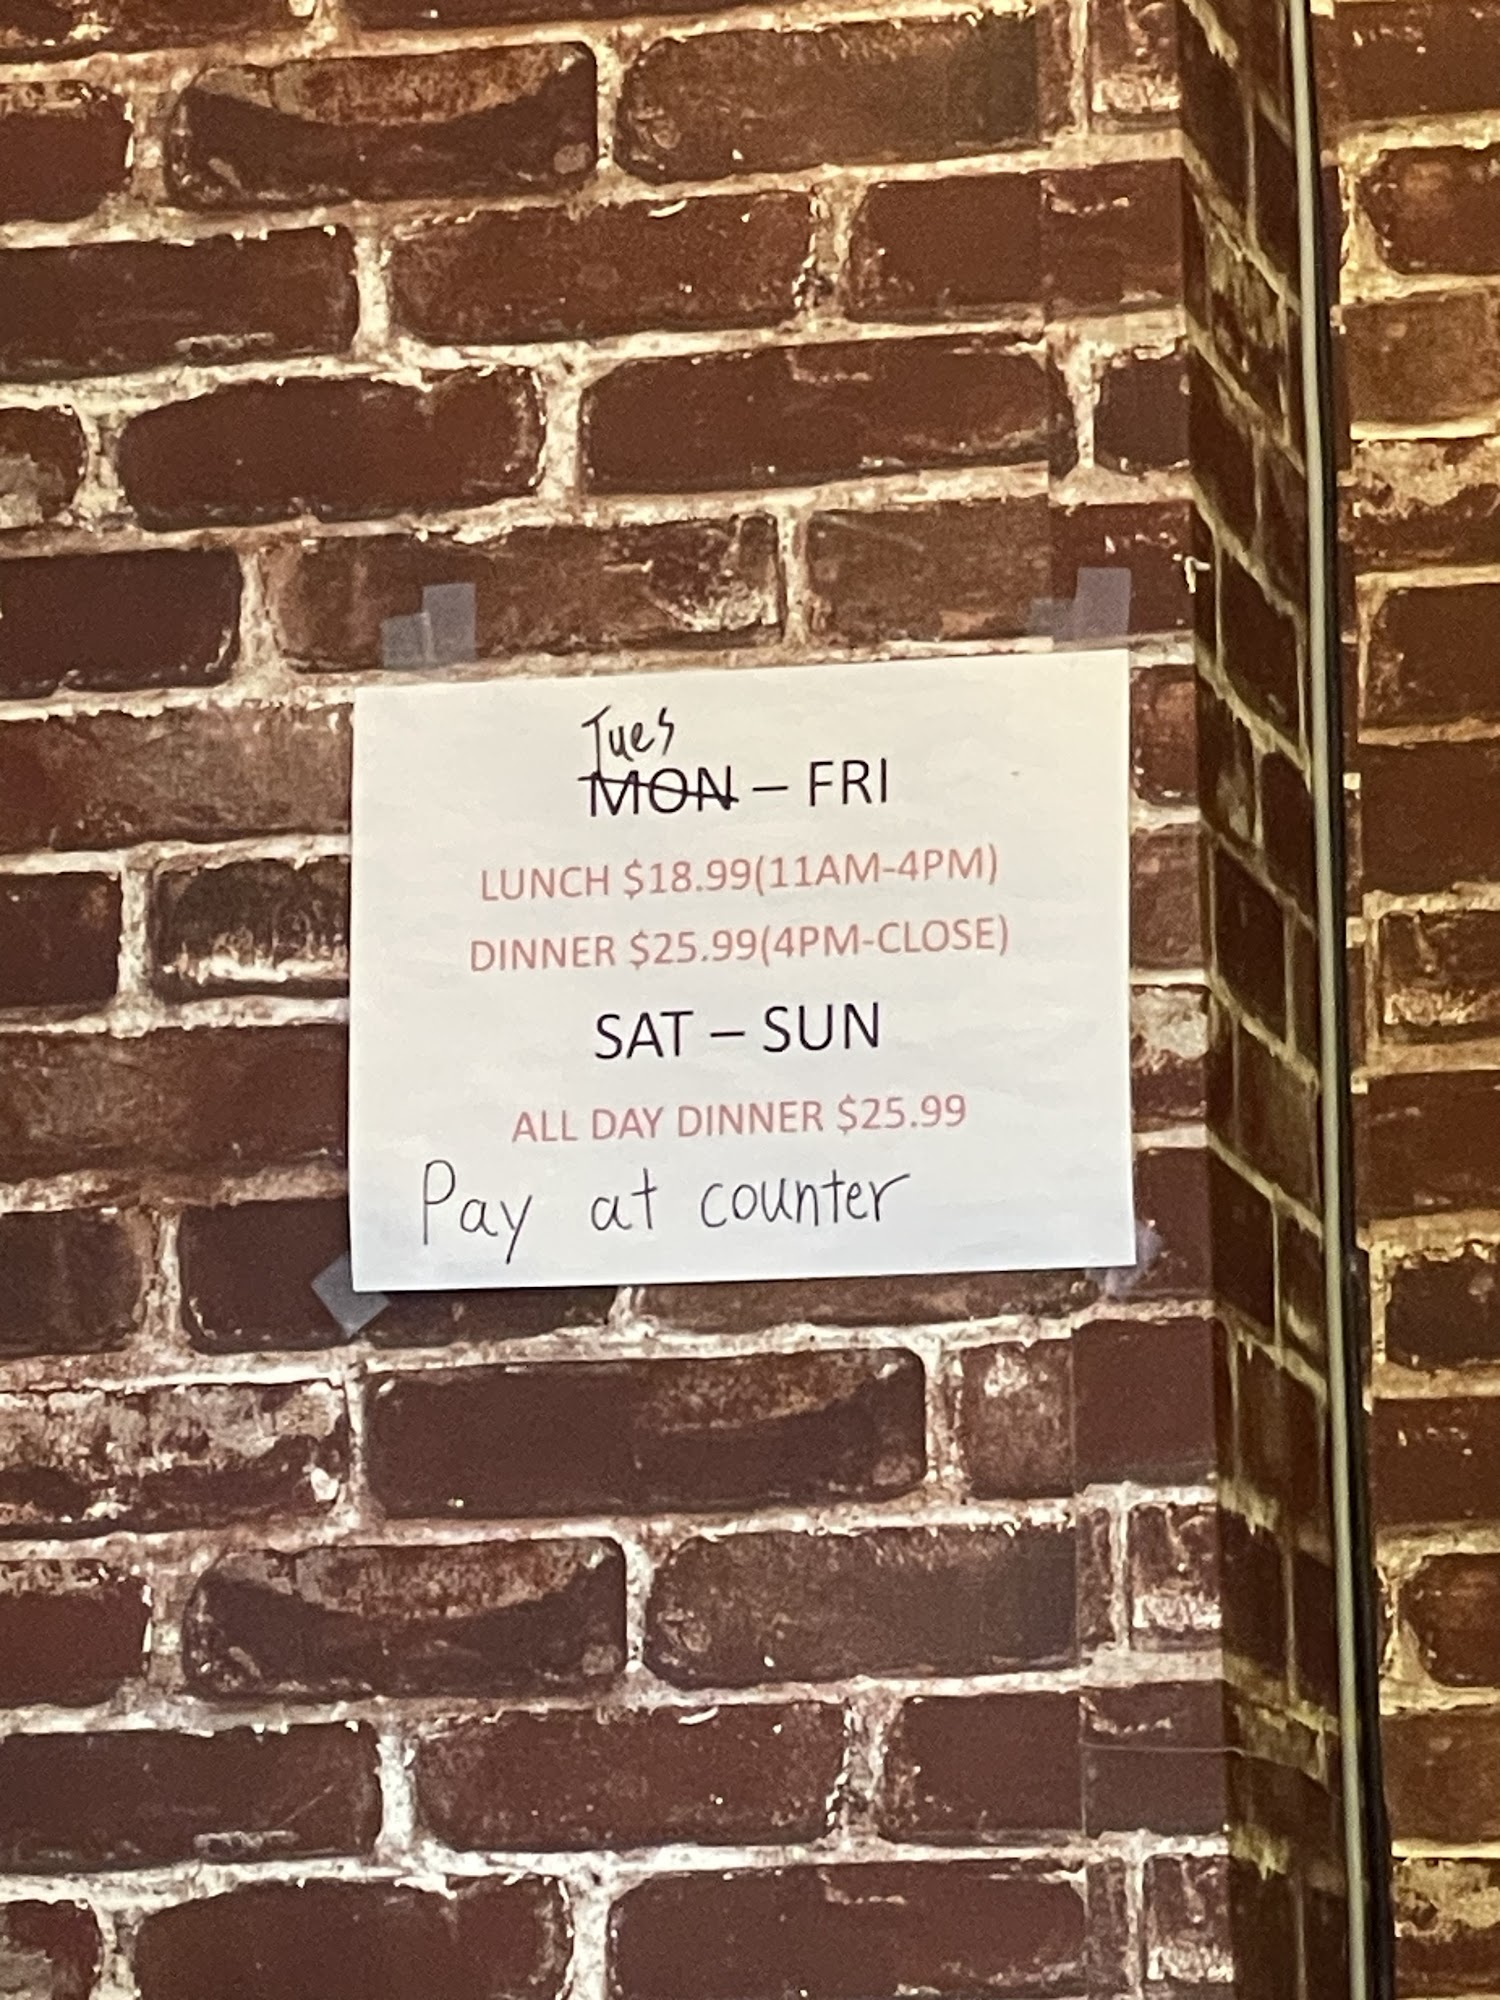 Tues
MON – FRI
LUNCH $18.99(11AM-4PM)
DINNER $25.99(4PM-CLOSE)
SAT – SUN
ALL DAY DINNER $25.99
Pay at counter